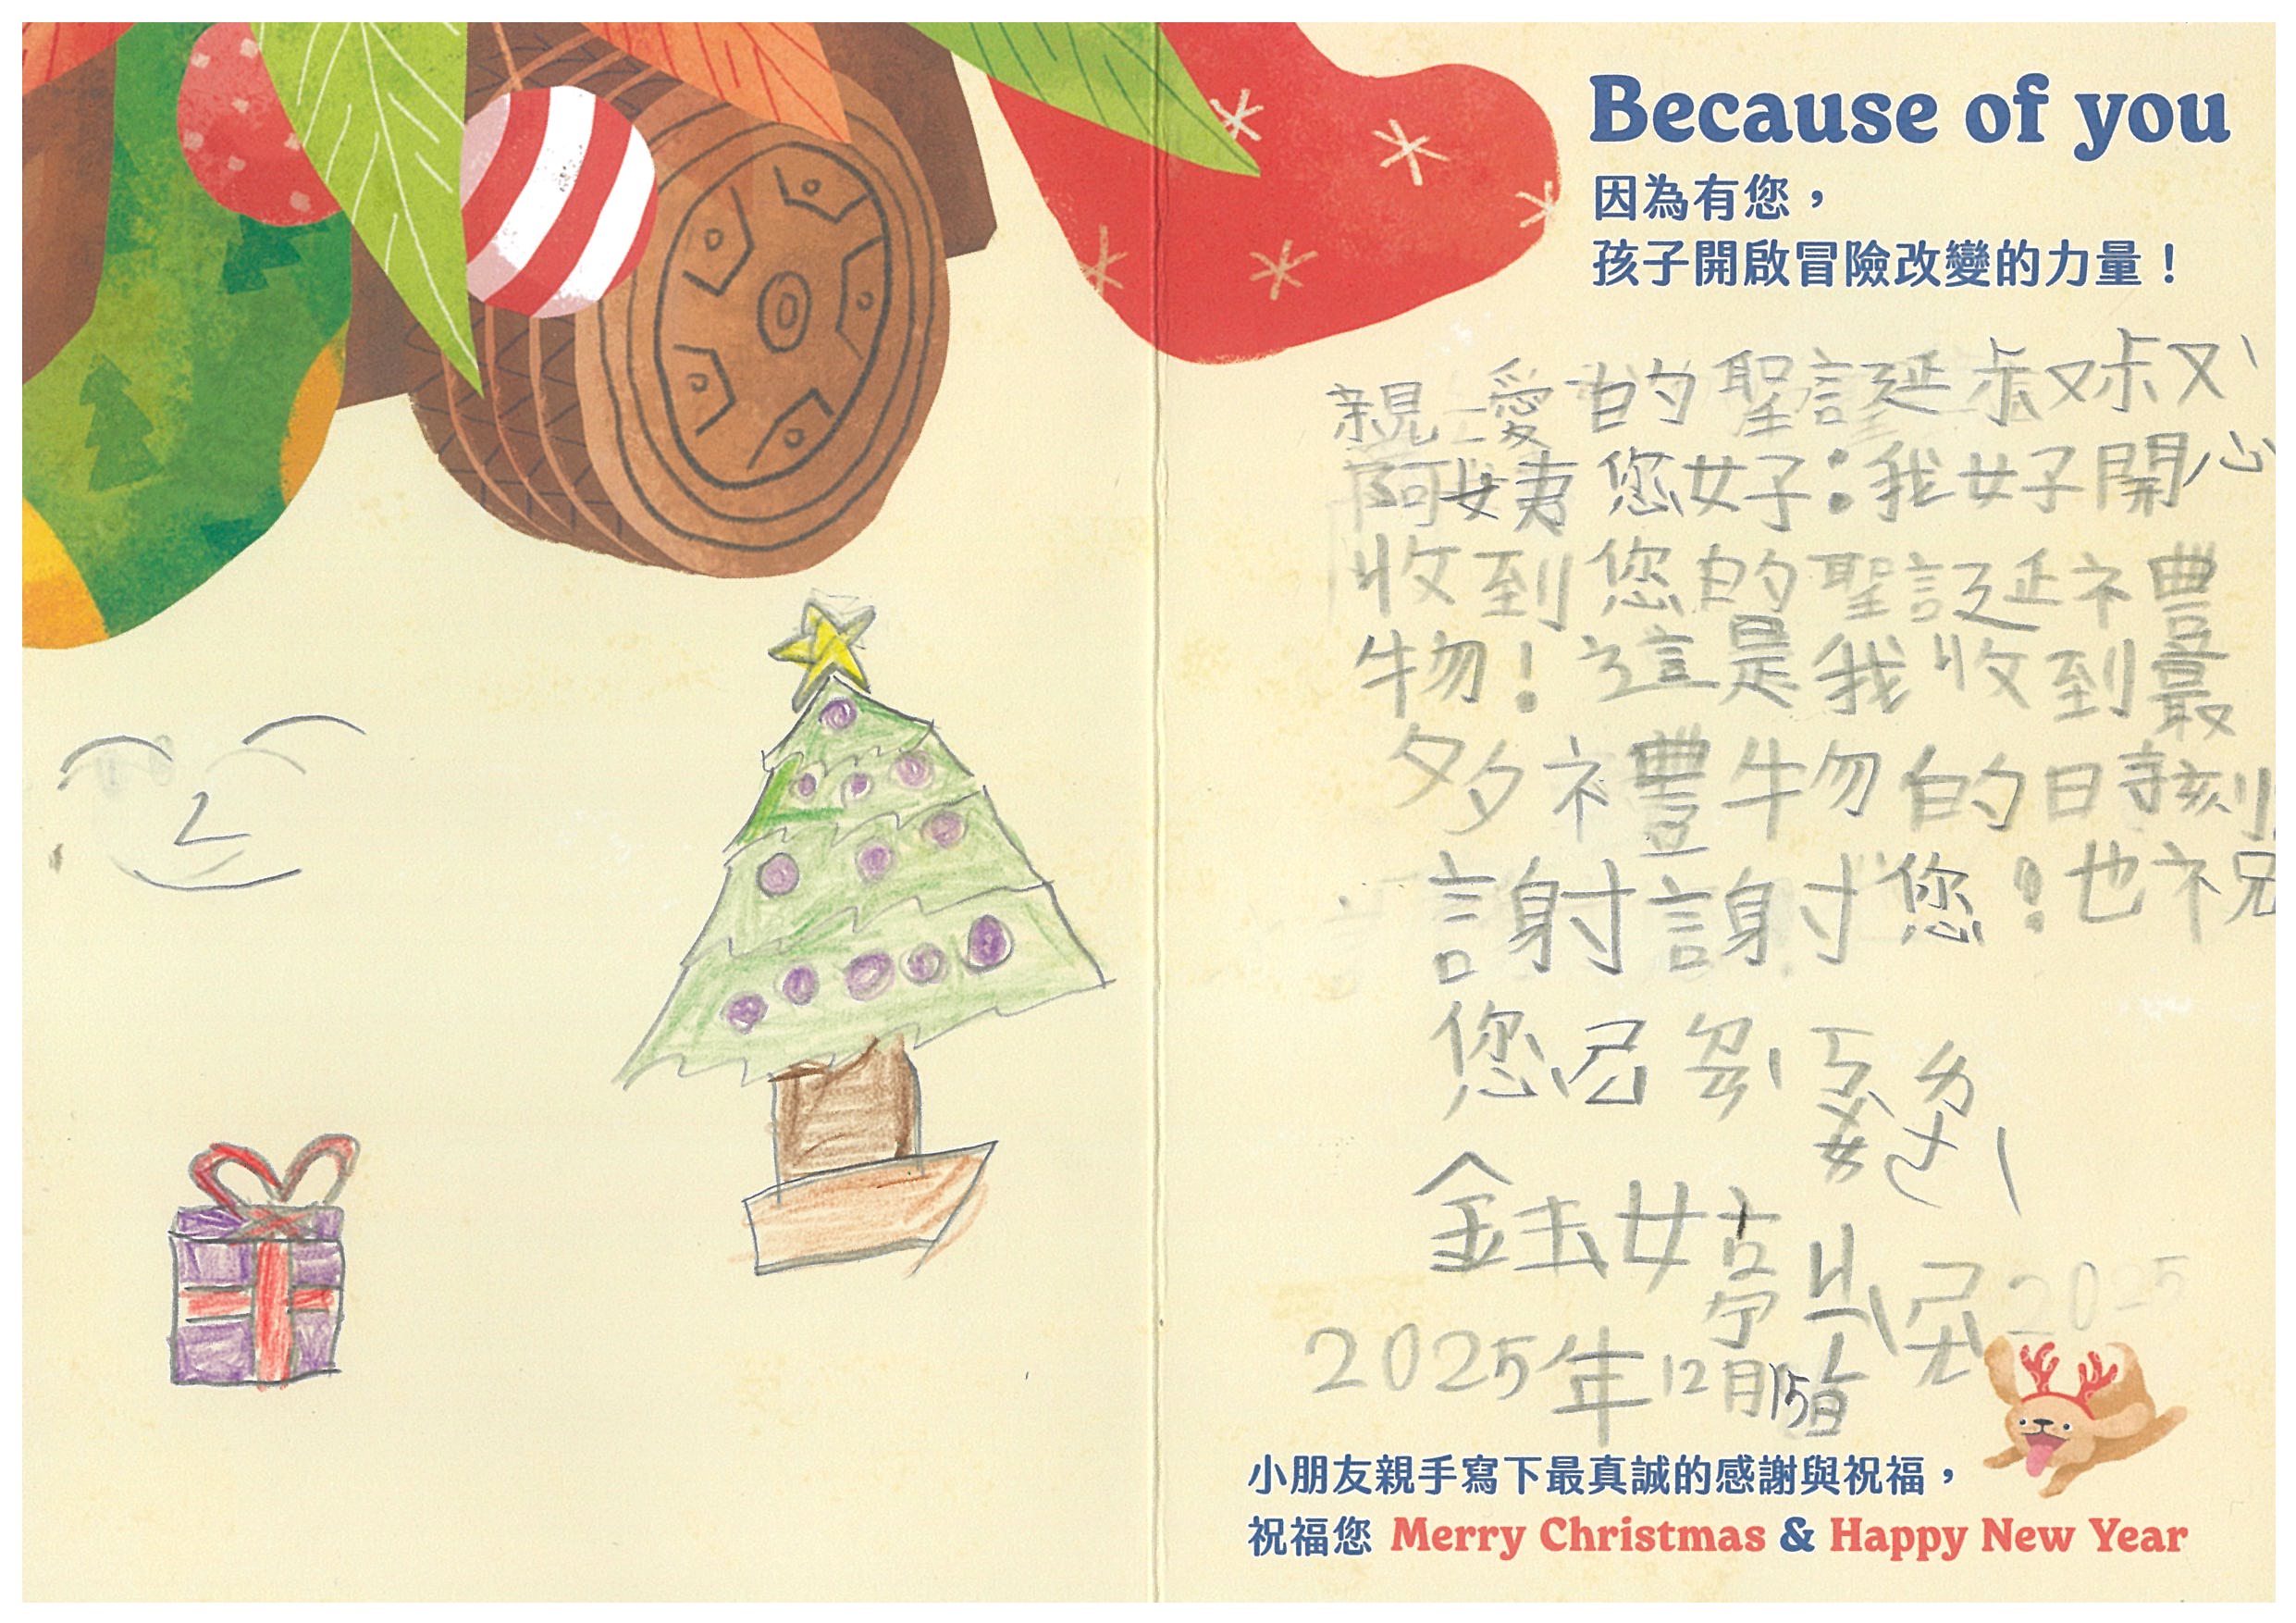 Because of you
因為有您，
孩子開啟冒險改變的力量！
親愛的聖誕叔叔
阿姨您好：我好開心
收到您的聖誕禮
物！這是我收到最
多禮物的時刻
謝謝您！也祝
您
2025
2025年12月15日
小朋友親手寫下最真誠的感謝與祝福，
祝福您 Merry Christmas & Happy New Year